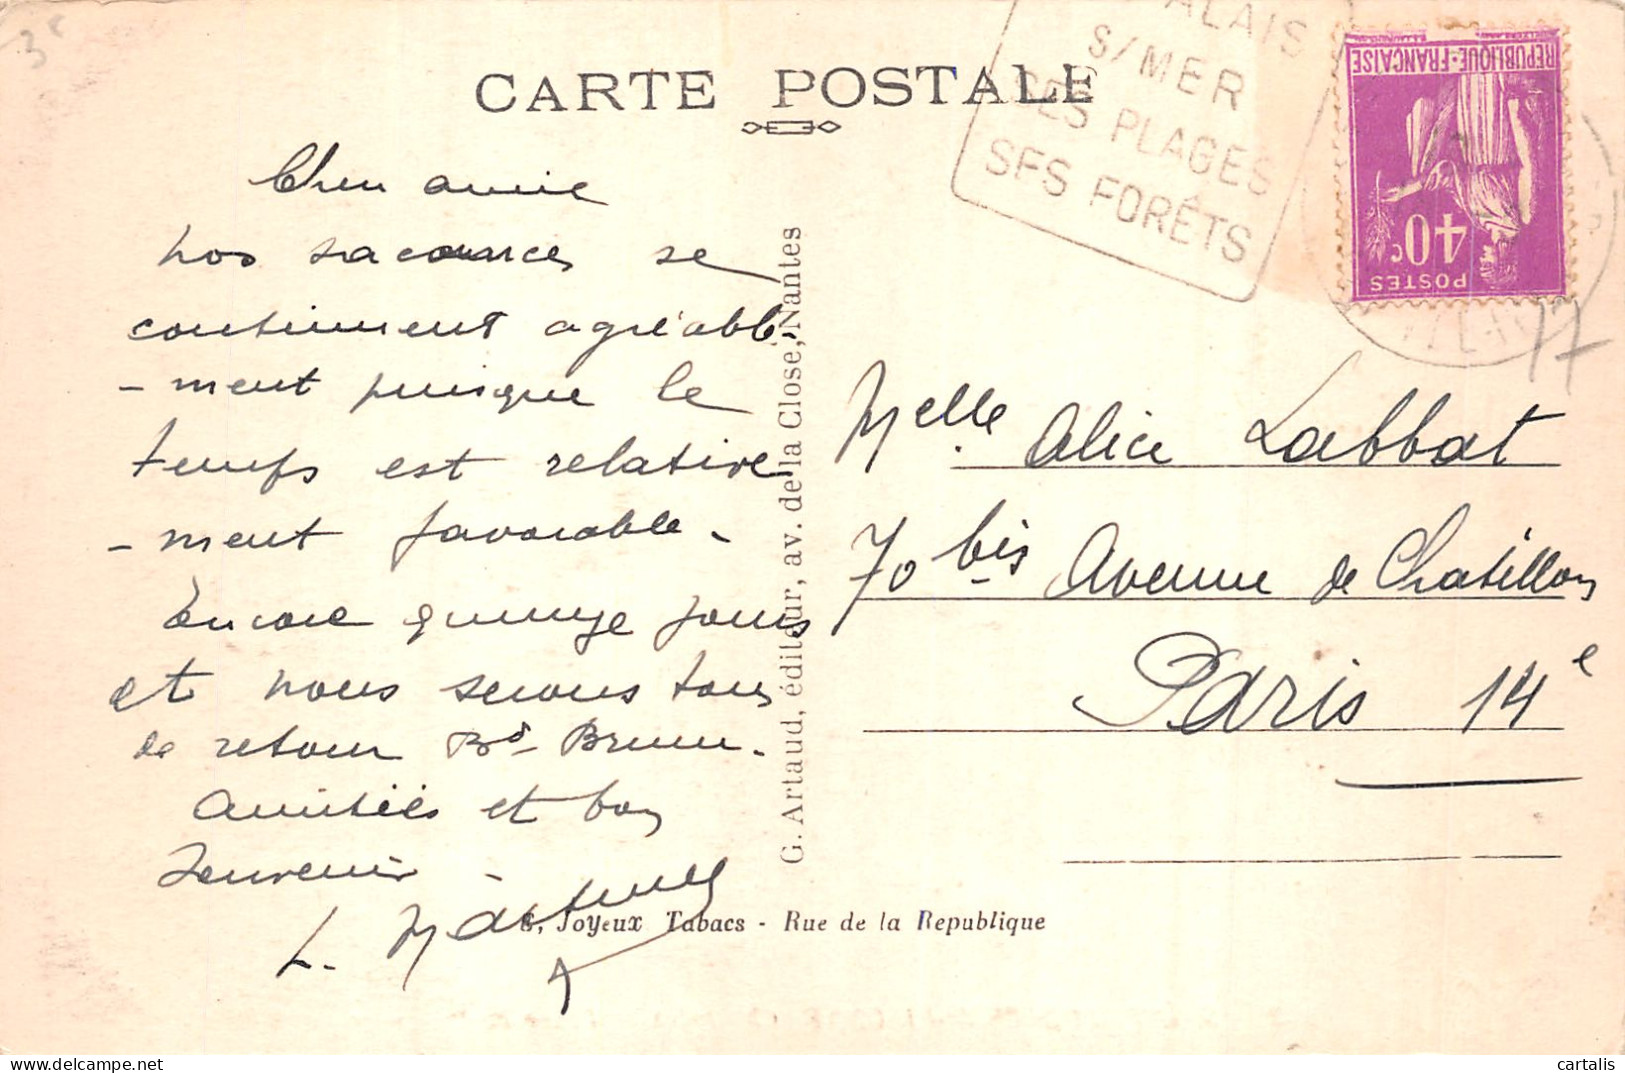 3€
CARTE POSTALE
ALAIS
S/MER
SES PLAGES
SES FORÊTS
REPUBLIQUE-FRANÇAISE
40c
POSTES
77
Chère amie
nos vacances se
continuent agréable-
-ment puisque le
temps est relative
-ment favorable.
encore quinze jours
et nous serons tous
de retour Bd Brune.
Amitiés et bon
souvenir.
L.
Melle Alice Labbat
70 bis Avenue de Chatillon
Paris 14e
G. Artaud, éditeur, av. de la Close, Nantes
Joyeux Tabacs - Rue de la Republique
cartalis